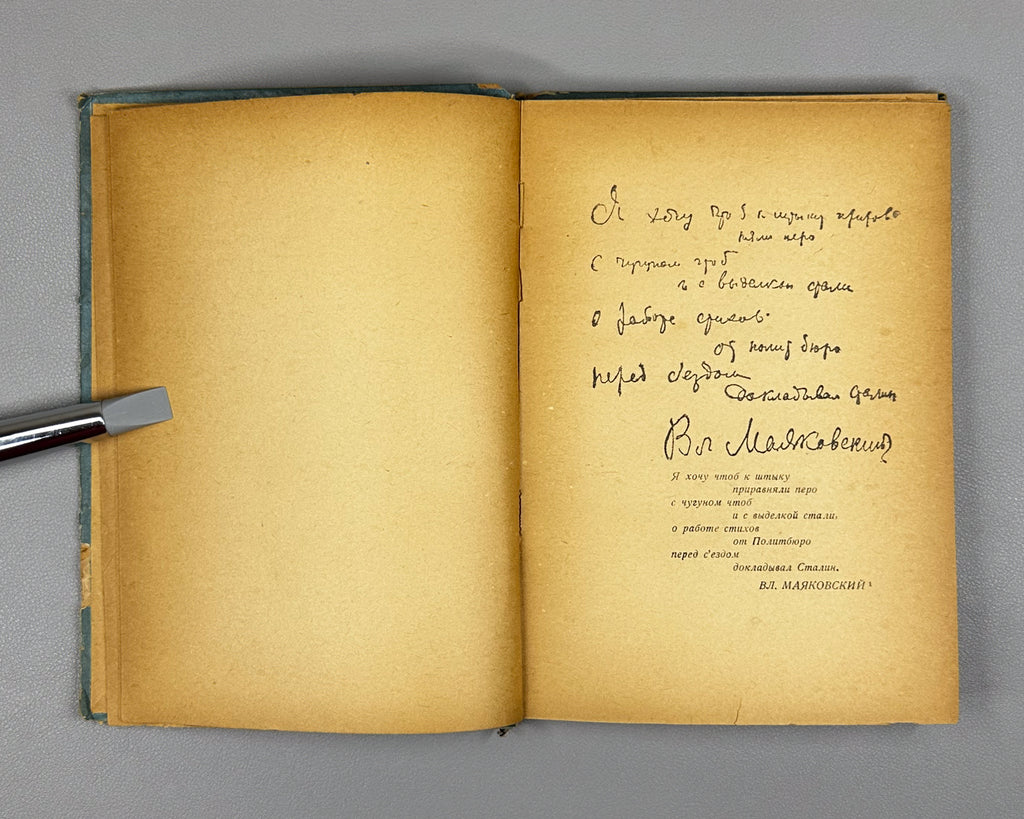 Я хочу чтоб к штыку приравняли
перо
С чугуном чтоб
и с выделкой стали
о работе стихов
от полит бюро
перед с'ездом
докладывал Сталин
Вл Маяковский
Я хочу чтоб к штыку
приравняли перо
с чугуном чтоб
и с выделкой стали,
о работе стихов
от Политбюро
перед с'ездом
докладывал Сталин.
ВЛ. МАЯКОВСКИЙ